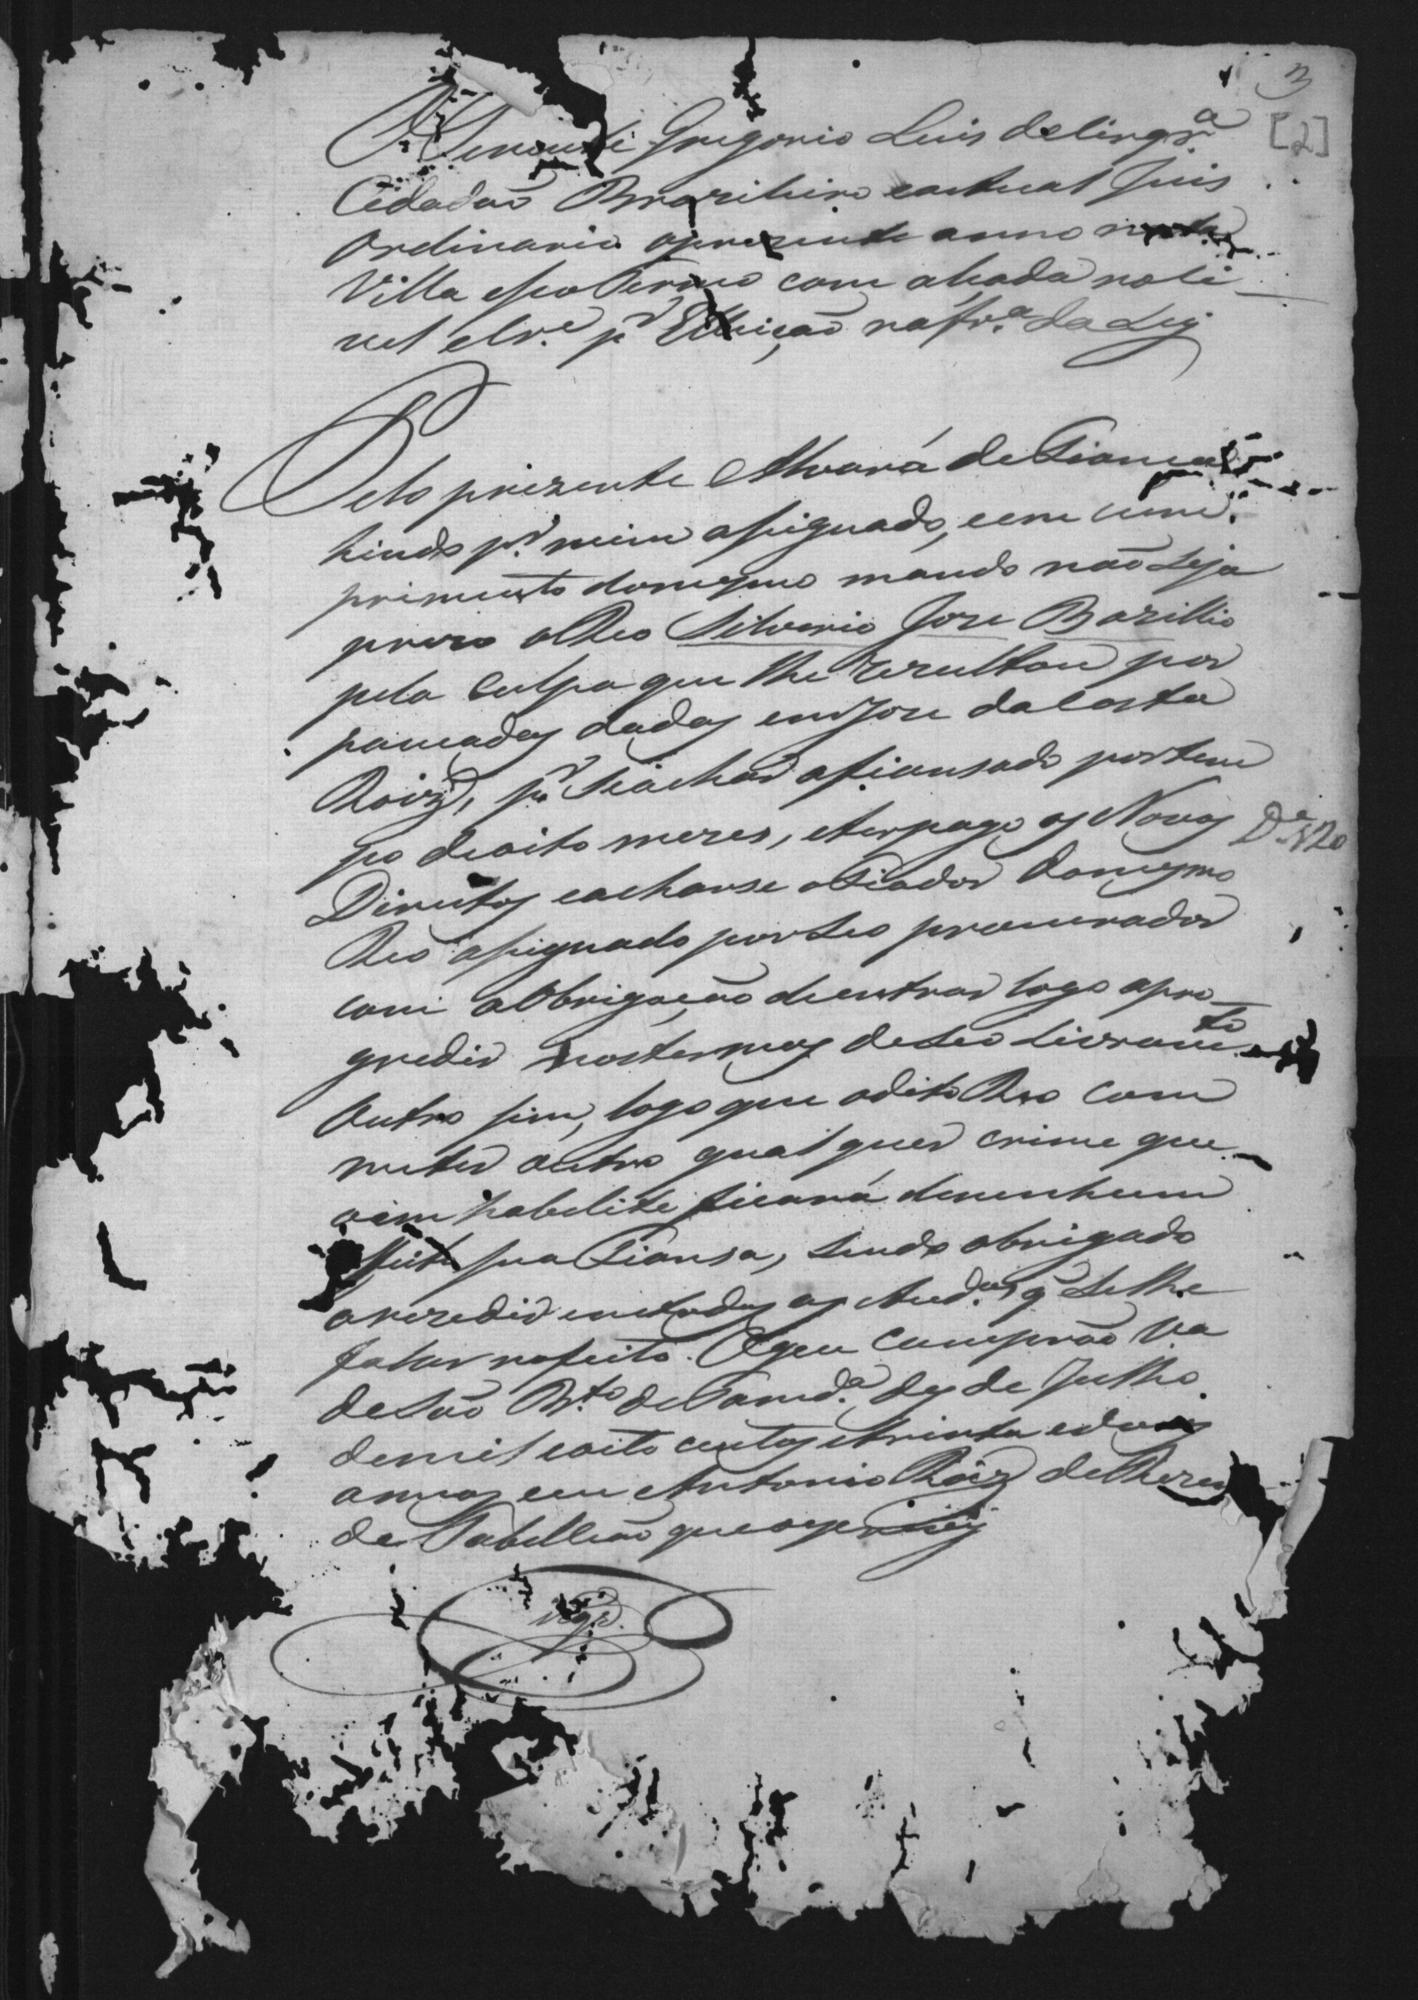 3
[2]
O Gregorio Luis de Cirqr.ª
Cidadaõ Brazileiro eactual Juis
Ordinario oprezente anno nesta
Villa eseo Termo com alsada noci
vel elr.e pr Elleiçaõ nafr.ª da Ley
Pelo prezente Alvará de Fiança
hindo pr. mim asignado, eem cum
primento domesmo mando naõ seja
prezo oReo Silverio Joze Bazillio
pela Culpa que lhe rezultou por
pancadas dadas emJoze daCosta
Roiz, pr. seachar afiansado portem
po deoito mezes, eterpago os Novos
Direitos eacharse oFiador domesmo
Reo asignado porseo procurador
com aObrigaçaõ deentrar logo apro
gredir nostermos deseo Livramto
Outro sim, logo que odito Reo com
meter outro qualquer crime que
oimhabelite ficará denenhum
efeito sua Fiansa, sendo obrigado
arezedir emtodas as Aud.as q̃ selhe
falar nofeito. Oque cumpraõ Va
deSaõ B.to deTamd.ª des de Julho
demil eoito centos etrinta edois
annos eeu Antonio Roiz
de Tabelliaõ queoescrevy
D.e 520